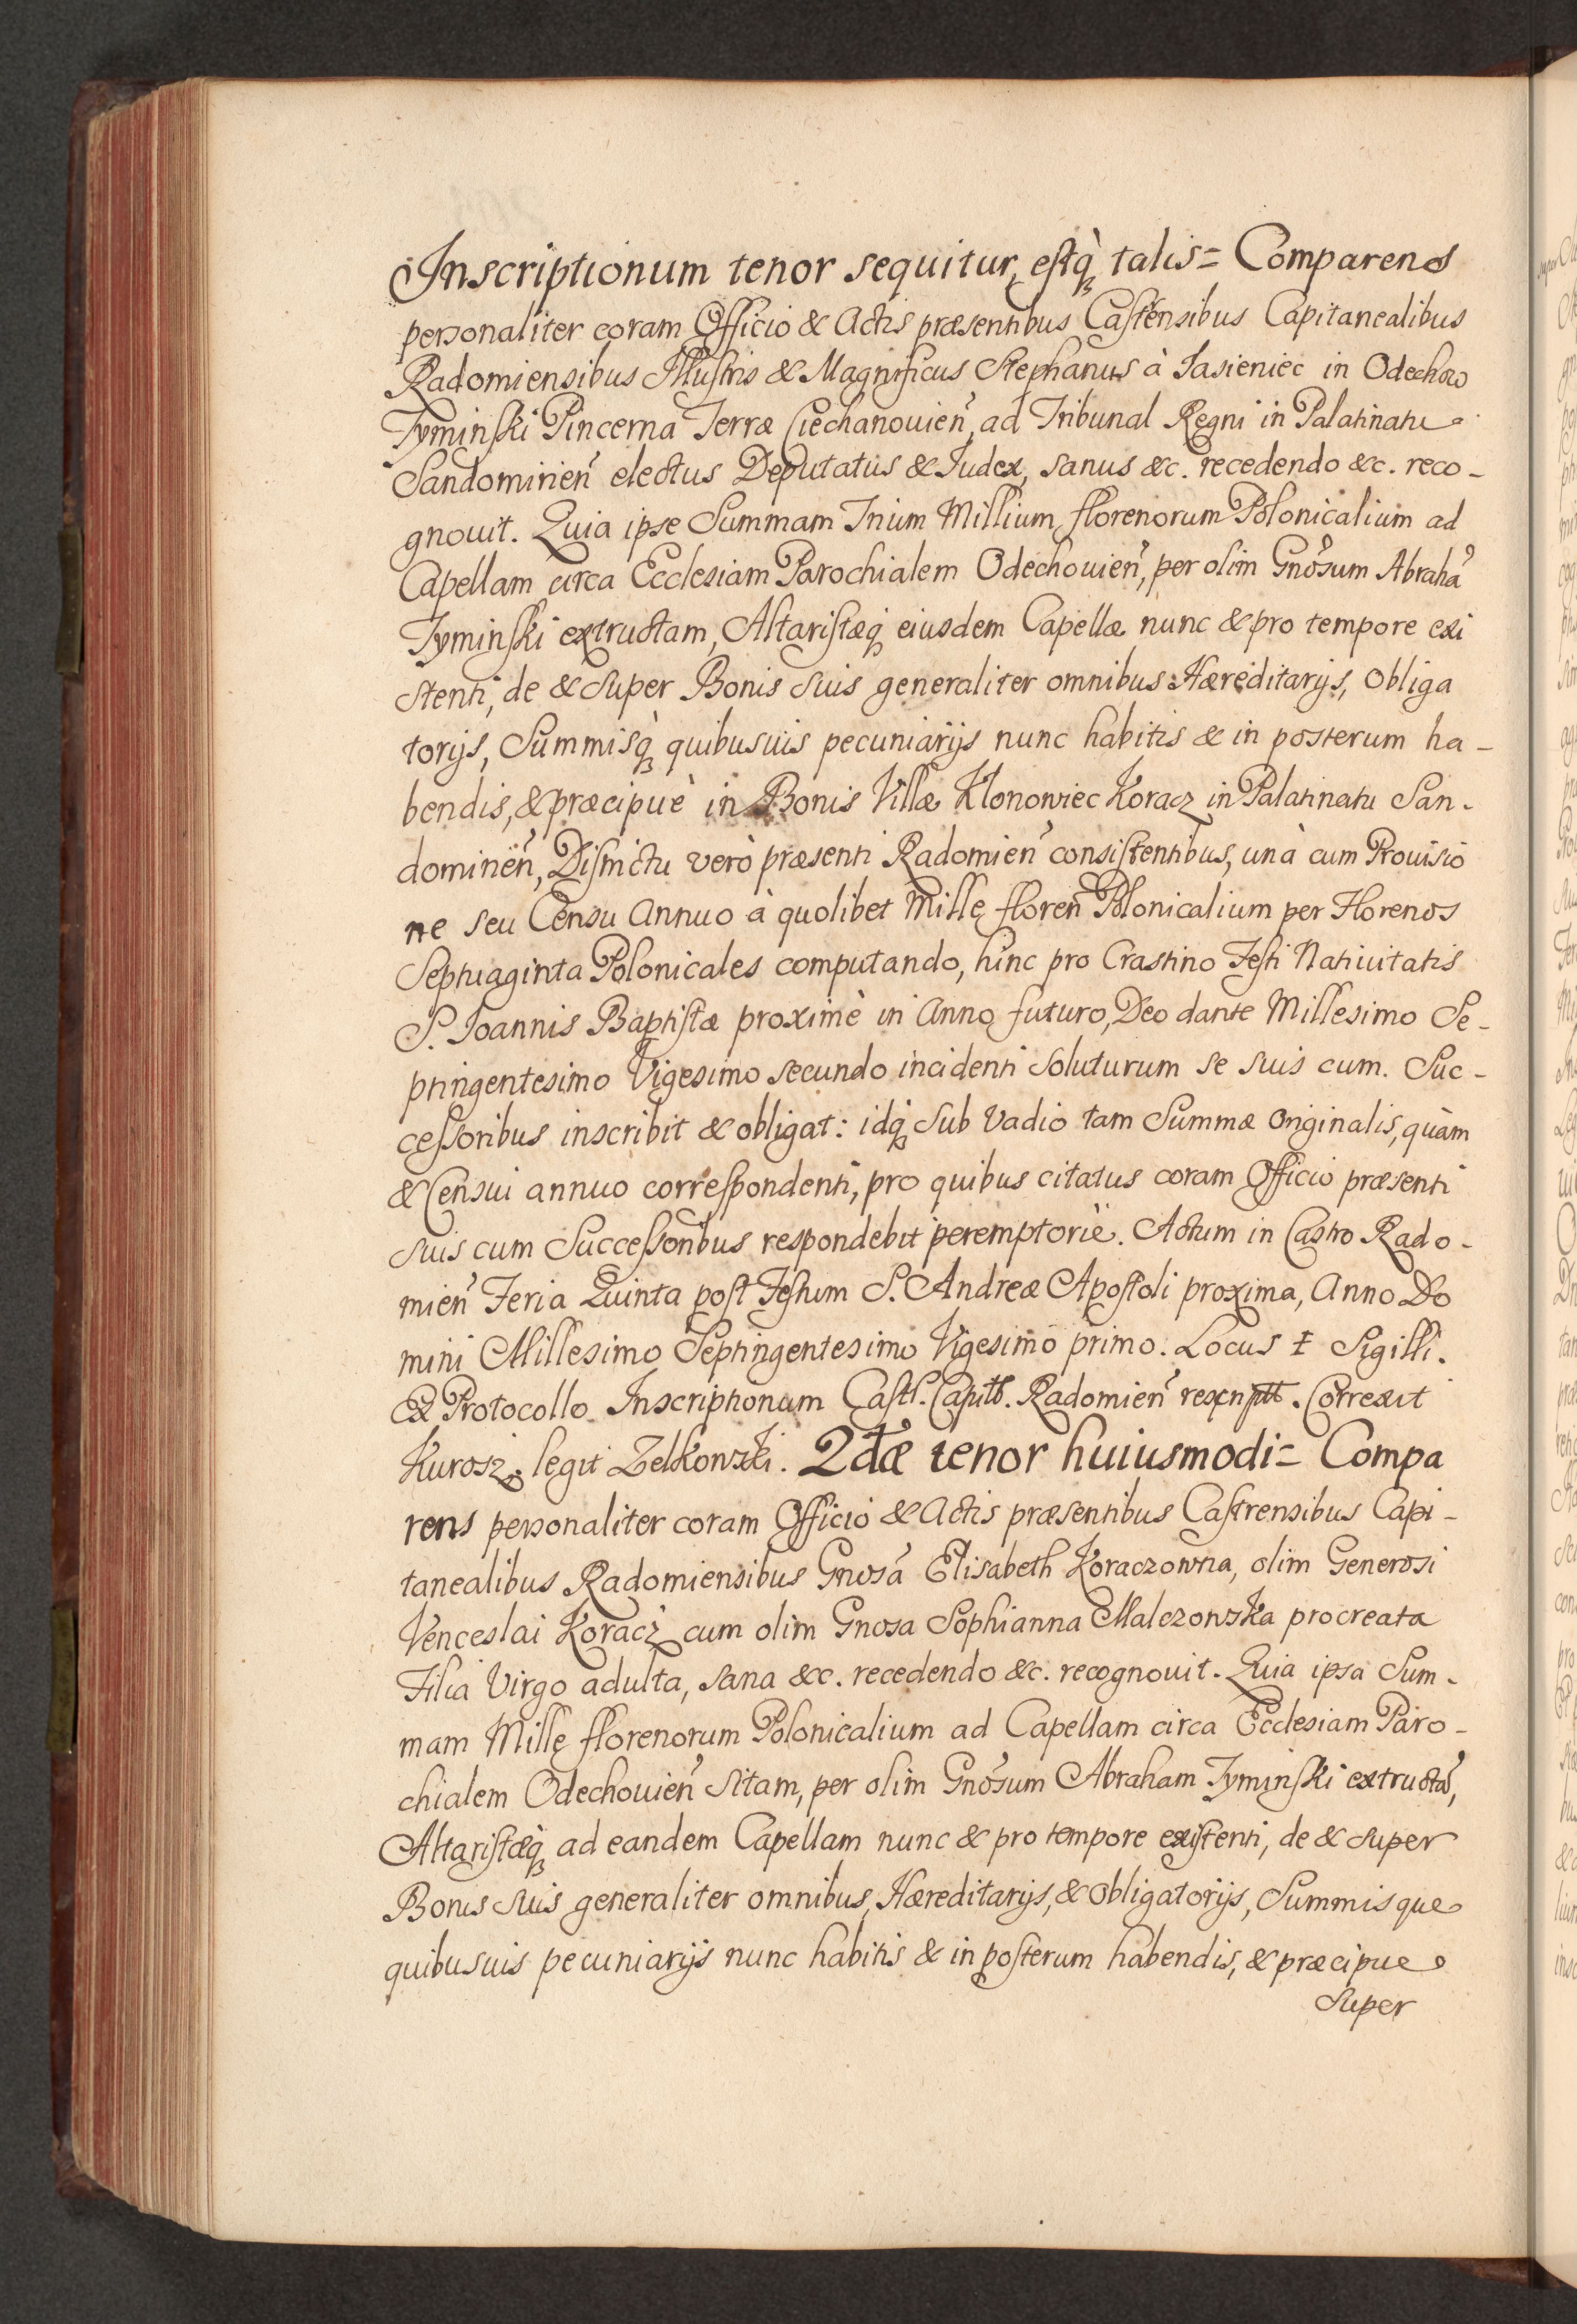 Inscriptionum tenor sequitur, estq̀ꝫ talis = Comparens
personaliter coram Officio & Actis præsentibus Castrensibus Capitanealibus
Radomiensibus Illustris & Magnificus Stephanus à Jasieniec in Odechow
Tyminski Pincerna Terræ Ciechanouień, ad Tribunal Regni in Palatinatu
Sandomirień electus Deputatus & Iudex, sanus &c. recedendo &c. reco-
gnouit. Quia ipse Summam Trium Millium florenorum Polonicalium ad
Capellam circa Ecclesiam Parochialem Odechouień, per olim Gnõsum Abrahã
Tyminski extructam, Altaristæqꝫ eiusdem Capellæ nunc & pro tempore exi
stenti, de & super Bonis suis generaliter omnibus Hæreditarijs, obliga
torijs, Summisq̀ꝫ quibusuis pecuniarijs nunc habitis & in posterum ha-
bendis, & præcipuè in Bonis Villæ Klonowiec Koracz in Palatinatu San-
domirień, Districtu verò præsenti Radomień consistentibus, unà cum Prouisio
ne seu Censu Annuo à quolibet Mille floreń Polonicalium per Florenos
Septuaginta Polonicales computando, hinc pro Crastino Festi Natiuitatis
S. Joannis Baptistæ proximè in Anno futuro, Deo dante Millesimo Se-
ptingentesimo Vigesimo secundo incidenti soluturum se suis cum. Suc-
cessoribus inscribit & obligat: idqꝫ sub vadio tam Summæ originalis, quàm
& Censui annuo correspondenti, pro quibus citatus coram Officio præsenti
suis cum Successoribus respondebit peremptoriè. Actum in Castro Rado-
mień Feria Quinta post Festum S. Andreæ Apostoli proxima, Anno Do
mini Millesimo Septingentesimo Vigesimo primo. Locus ‡ Sigilli.
Ex Protocollo Inscriptionum Castr. Capitl. Radomień rescript. Correxit
Kurosz. legit Zelkowski. 2dæ tenor huiusmodi = Compa
rens personaliter coram Officio & Actis præsentibus Castrensibus Capi-
tanealibus Radomiensibus Gnosã Elisabeth Koraczowna, olim Generosi
Venceslai Koracz cum olim Gnosa Sophianna Malczowska procreata
Filia Virgo adulta, sana &c. recedendo &c. recognouit. Quia ipsa Sum-
mam Mille florenorum Polonicalium ad Capellam circa Ecclesiam Paro-
chialem Odechouień sitam, per olim Gnõsum Abraham Tyminski extructã,
Altaristæq̀ꝫ ad eandem Capellam nunc & pro tempore existenti, de & super
Bonis suis generaliter omnibus, Hæreditarijs, & obligatorijs, Summisque
quibusuis pecuniarijs nunc habitis & in posterum habendis, & præcipue
super